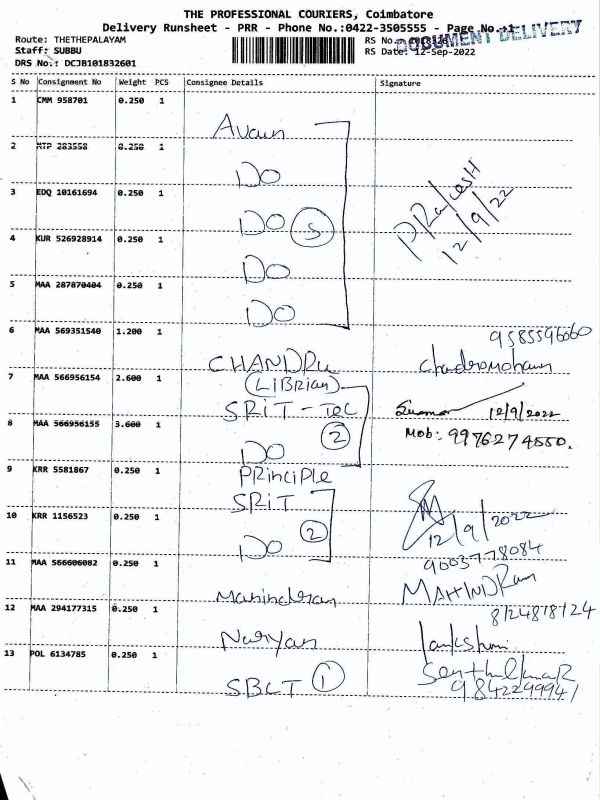 THE PROFESSIONAL COURIERS, Coimbatore
Delivery Runsheet - PRR - Phone No.:0422-3505555 - Page No.:1
DOCUMENT DELIVERY
Route: THETHEPALAYAM RS No.
Staff: SUBBU RS Date: 12-Sep-2022
DRS No.: DCJB101832601
S No Consignment No Weight PCS Consignee Details Signature
1 CMM 958701 0.250 1
Avaun
2 MTP 283558 0.250 1
DO
P Rakesh
12/9/22
3 EDQ 10161694 0.250 1
DO 5
4 KUR 526928914 0.250 1
DO
5 MAA 287870404 0.250 1
DO
6 MAA 569351540 1.200 1
9585596060
CHANDRU Chandromohan
(LiBRian)
7 MAA 566956154 2.600 1
SRiT - Tec 12/9/2022
8 MAA 566956155 3.600 1
DO 2 Mob: 9976274550.
9 KRR 5581867 0.250 1
PRinciPle
SRiT
10 KRR 1156523 0.250 1
DO 2 12/9/2022
9003778084
11 MAA 566606082 0.250 1
Mahindran MAHINDRan
12 MAA 294177315 0.250 1
8124818124
Naryan
13 POL 6134785 0.250 1
SBCT 1 SenthilkumaR
9842299941